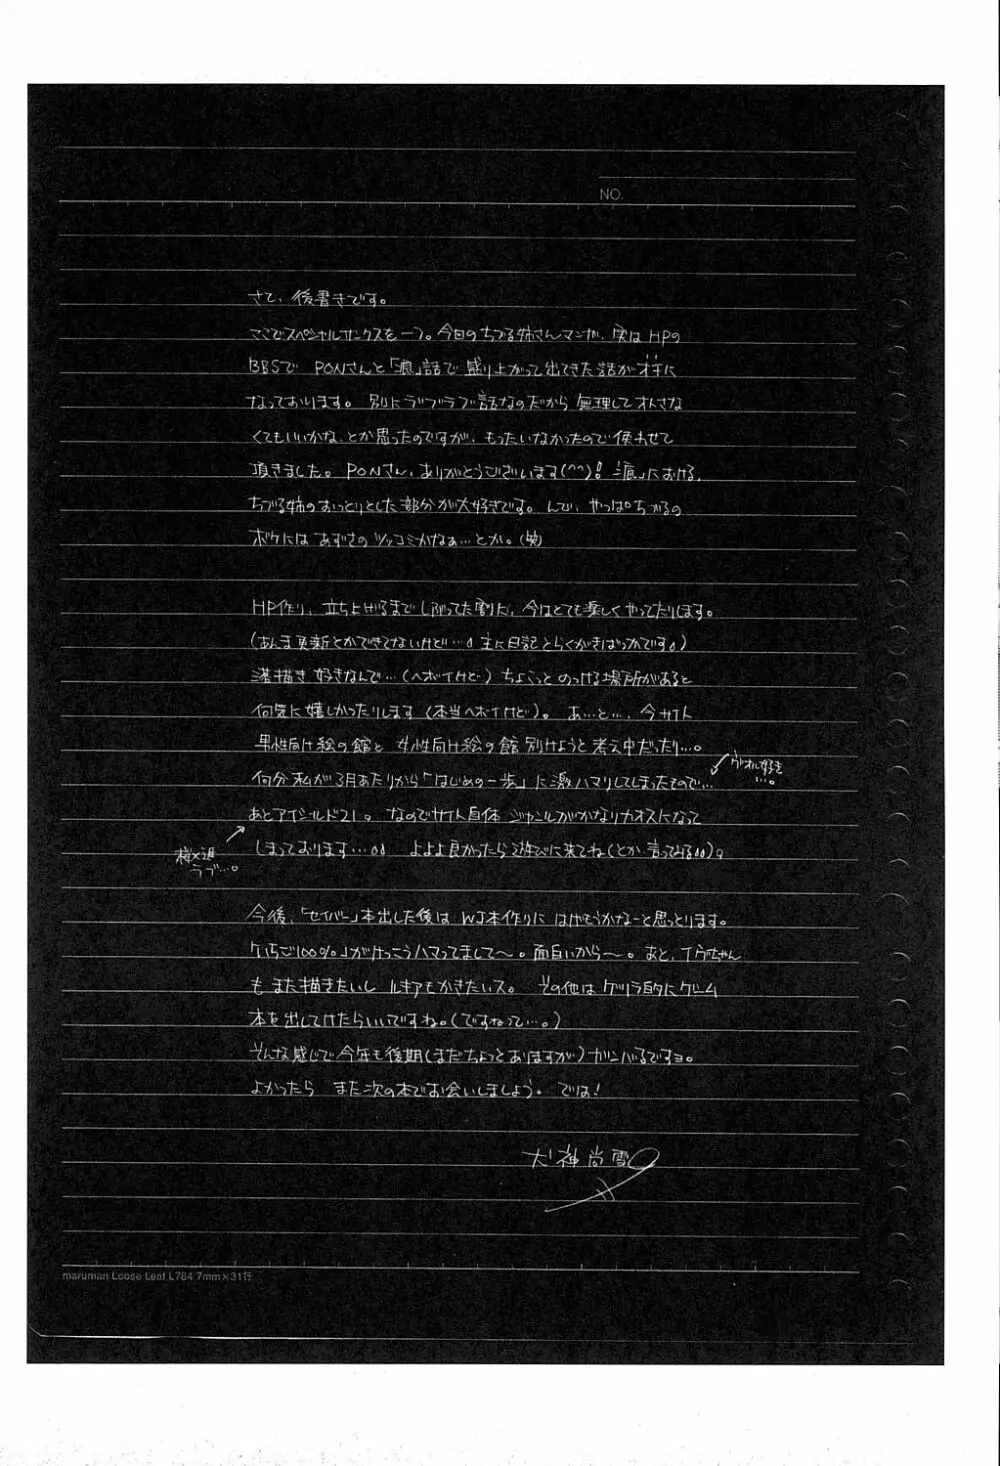 NO.
さて、後書きです。
ここでスペシャルサンクスを一つ。今回のちづる姉さんマンガ、実はHPの
BBSで PONさんと「痕」話で盛り上がって出てきた話がオチに
なっております。別にラブラブ話なのだから無理してオトさな
くてもいいかな、とか思ったのですが、もったいなかったので使わせて
頂きました。PONさん、ありがとうございます(^^)!「痕」における、
ちづる姉のおっとりとした部分が大好きです。んで、やっぱちづるの
ボケにはあずさのツッコミかなぁ…とか。(笑)
HP作り、立ち上げるまでしぶってた割に、今はとても楽しくやってたりします。
(あんま更新とかできてないけど…。主に日記とらくがきばっかです。)
落描き好きなんで…(ヘボイけど)ちょこっとのっける場所があると
何気に嬉しかったりします(本当ヘボイけど)。あ…と…、今サイト
男性向け絵の館と女性向け絵の館別けようと考え中だったり…。
何分私が3月あたりから「はじめの一歩」に激ハマリしてしまったもので…
ヴォルグ好き
…。
あとアイシールド21。なのでサイト自体ジャンルがかなりカオスになって
桜×進
ラブ…。
しまっております…。。よよよ良かったら遊びに来てね(とか言ってみる。。)。
今後、「セイバー」本出した後はWJ本作りにはげもうかなーと思っとります。
「いちご100%」がけっこうハマってまして〜。面白いから〜。あと、イヴちゃん
もまた描きたいし ルキアもかきたいス。その他はゲリラ的にゲーム
本を出してけたらいいですね。(ですねって…。)
そんな感じで今年も後期(まだちょっとありますが)ガンバるですョ。
よかったら また次の本でお会いしましょう。では!
犬神尚雪
maruman Loose Leaf L784 7mm×31行